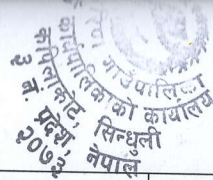 गाउँपालिका
कार्यपालिकाको कार्यालय
कपिलाकोट, सिन्धुली
३ नं. प्रदेश, नेपाल
२०७३